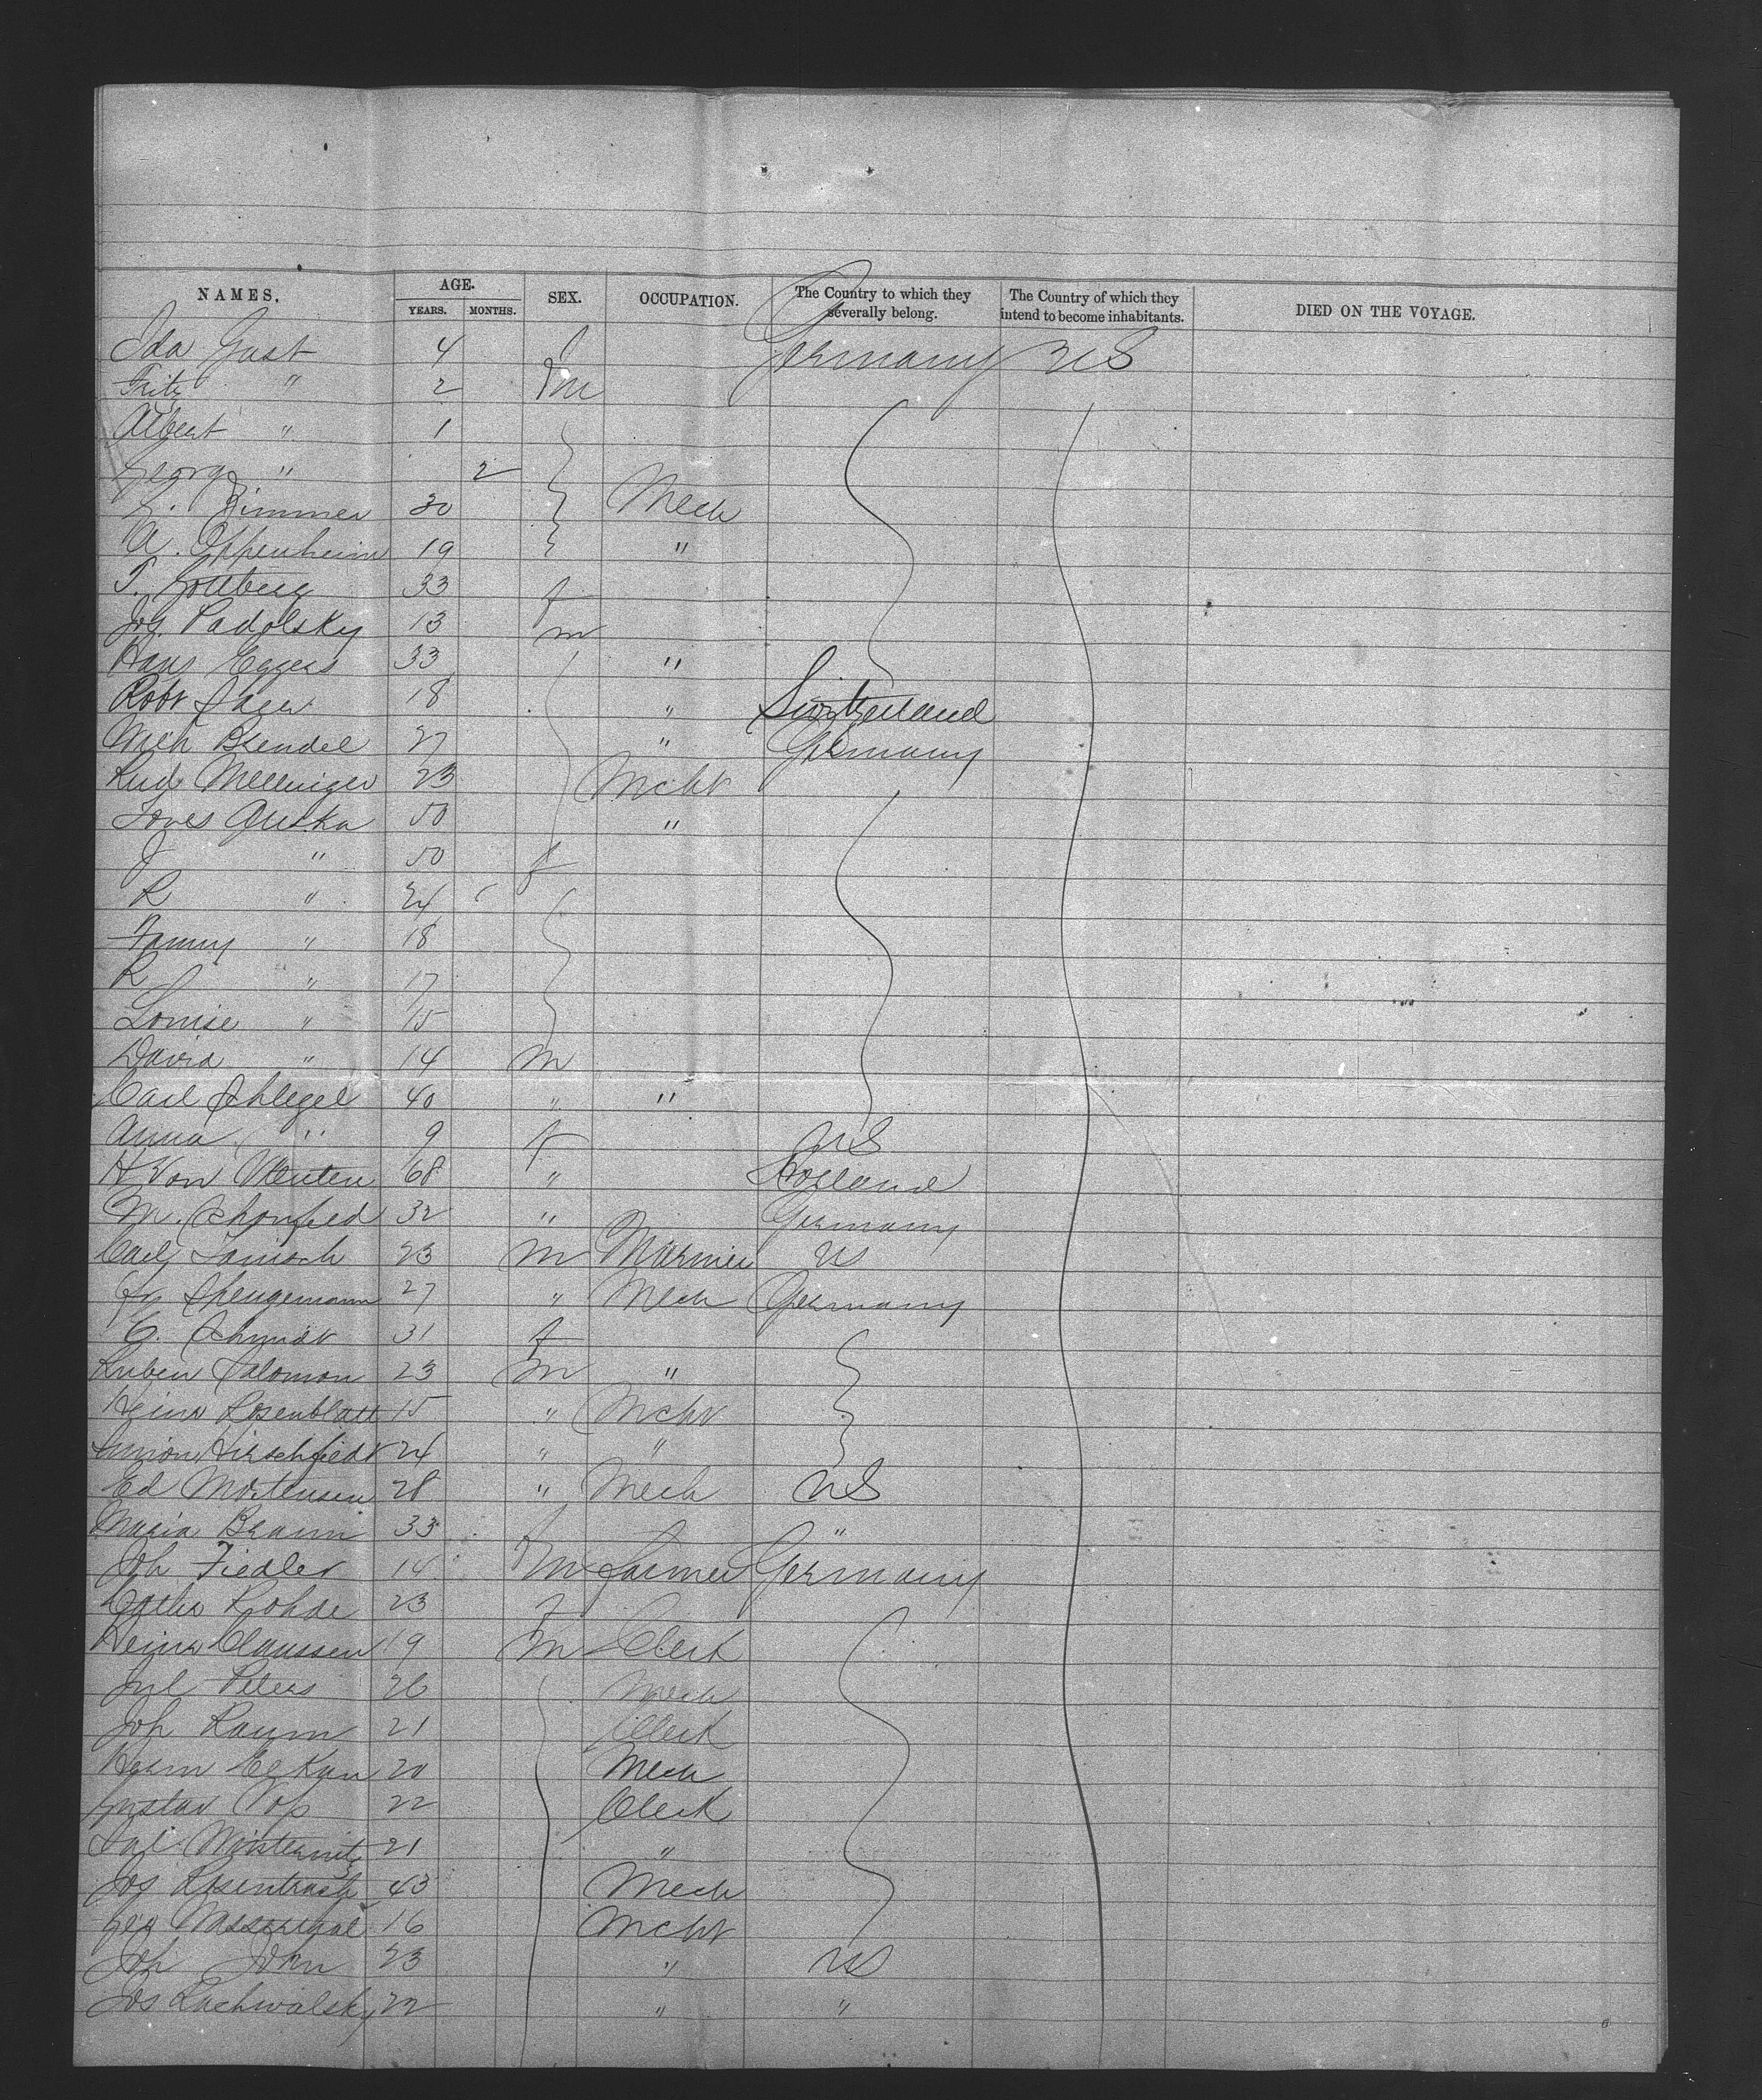 NAMES. AGE. YEARS. MONTHS. SEX. OCCUPATION. The Country to which they severally belong. The Country of which they intend to become inhabitants. DIED ON THE VOYAGE.
Ida Gast 4 f Germany US
Fritz " 2 m
Albert " 1
Georg " 2
Zimmer 30 Mech
A. Oppenheim 19 "
T. 33 f
Jos. Padolsky 13 m
Hans Eggers 33 "
Robt 18 " Switzerland
Mch Brendel 27 " Germany
Rud Mellinger 23 Mcht
50 "
J " 50 f
R " 24
Fanny " 18
R " 17
Louise " 15
David " 14 m
Carl Schlegel 40 " "
Anna " 9 f US
H Von 68 " Holland
M. Schonfeld 32 " Germany
Carl 23 m US
Spengemann 27 " Mech Germany
C. Schmidt 31 f
Ruben Salomon 23 m "
Heinr Rosenblatt 15 " Mcht
Simon Hirschfeldt 24 " "
Ed Mortensen 28 " Mech US
Maria Braun 33 f "
Joh Fiedler 14 m Farmer Germany
Rohde 23 f
Heinr Claussen 19 m Clerk
Jul Peters 26 Mech
Joh Raum 21 Clerk
Herm Elkan 20 Mech
Gustav Pop 22 Clerk
21 "
Jos 43 Mech
Geo 16 Mcht
Joh 23 " US
Jos Rachwalsky 22 " "